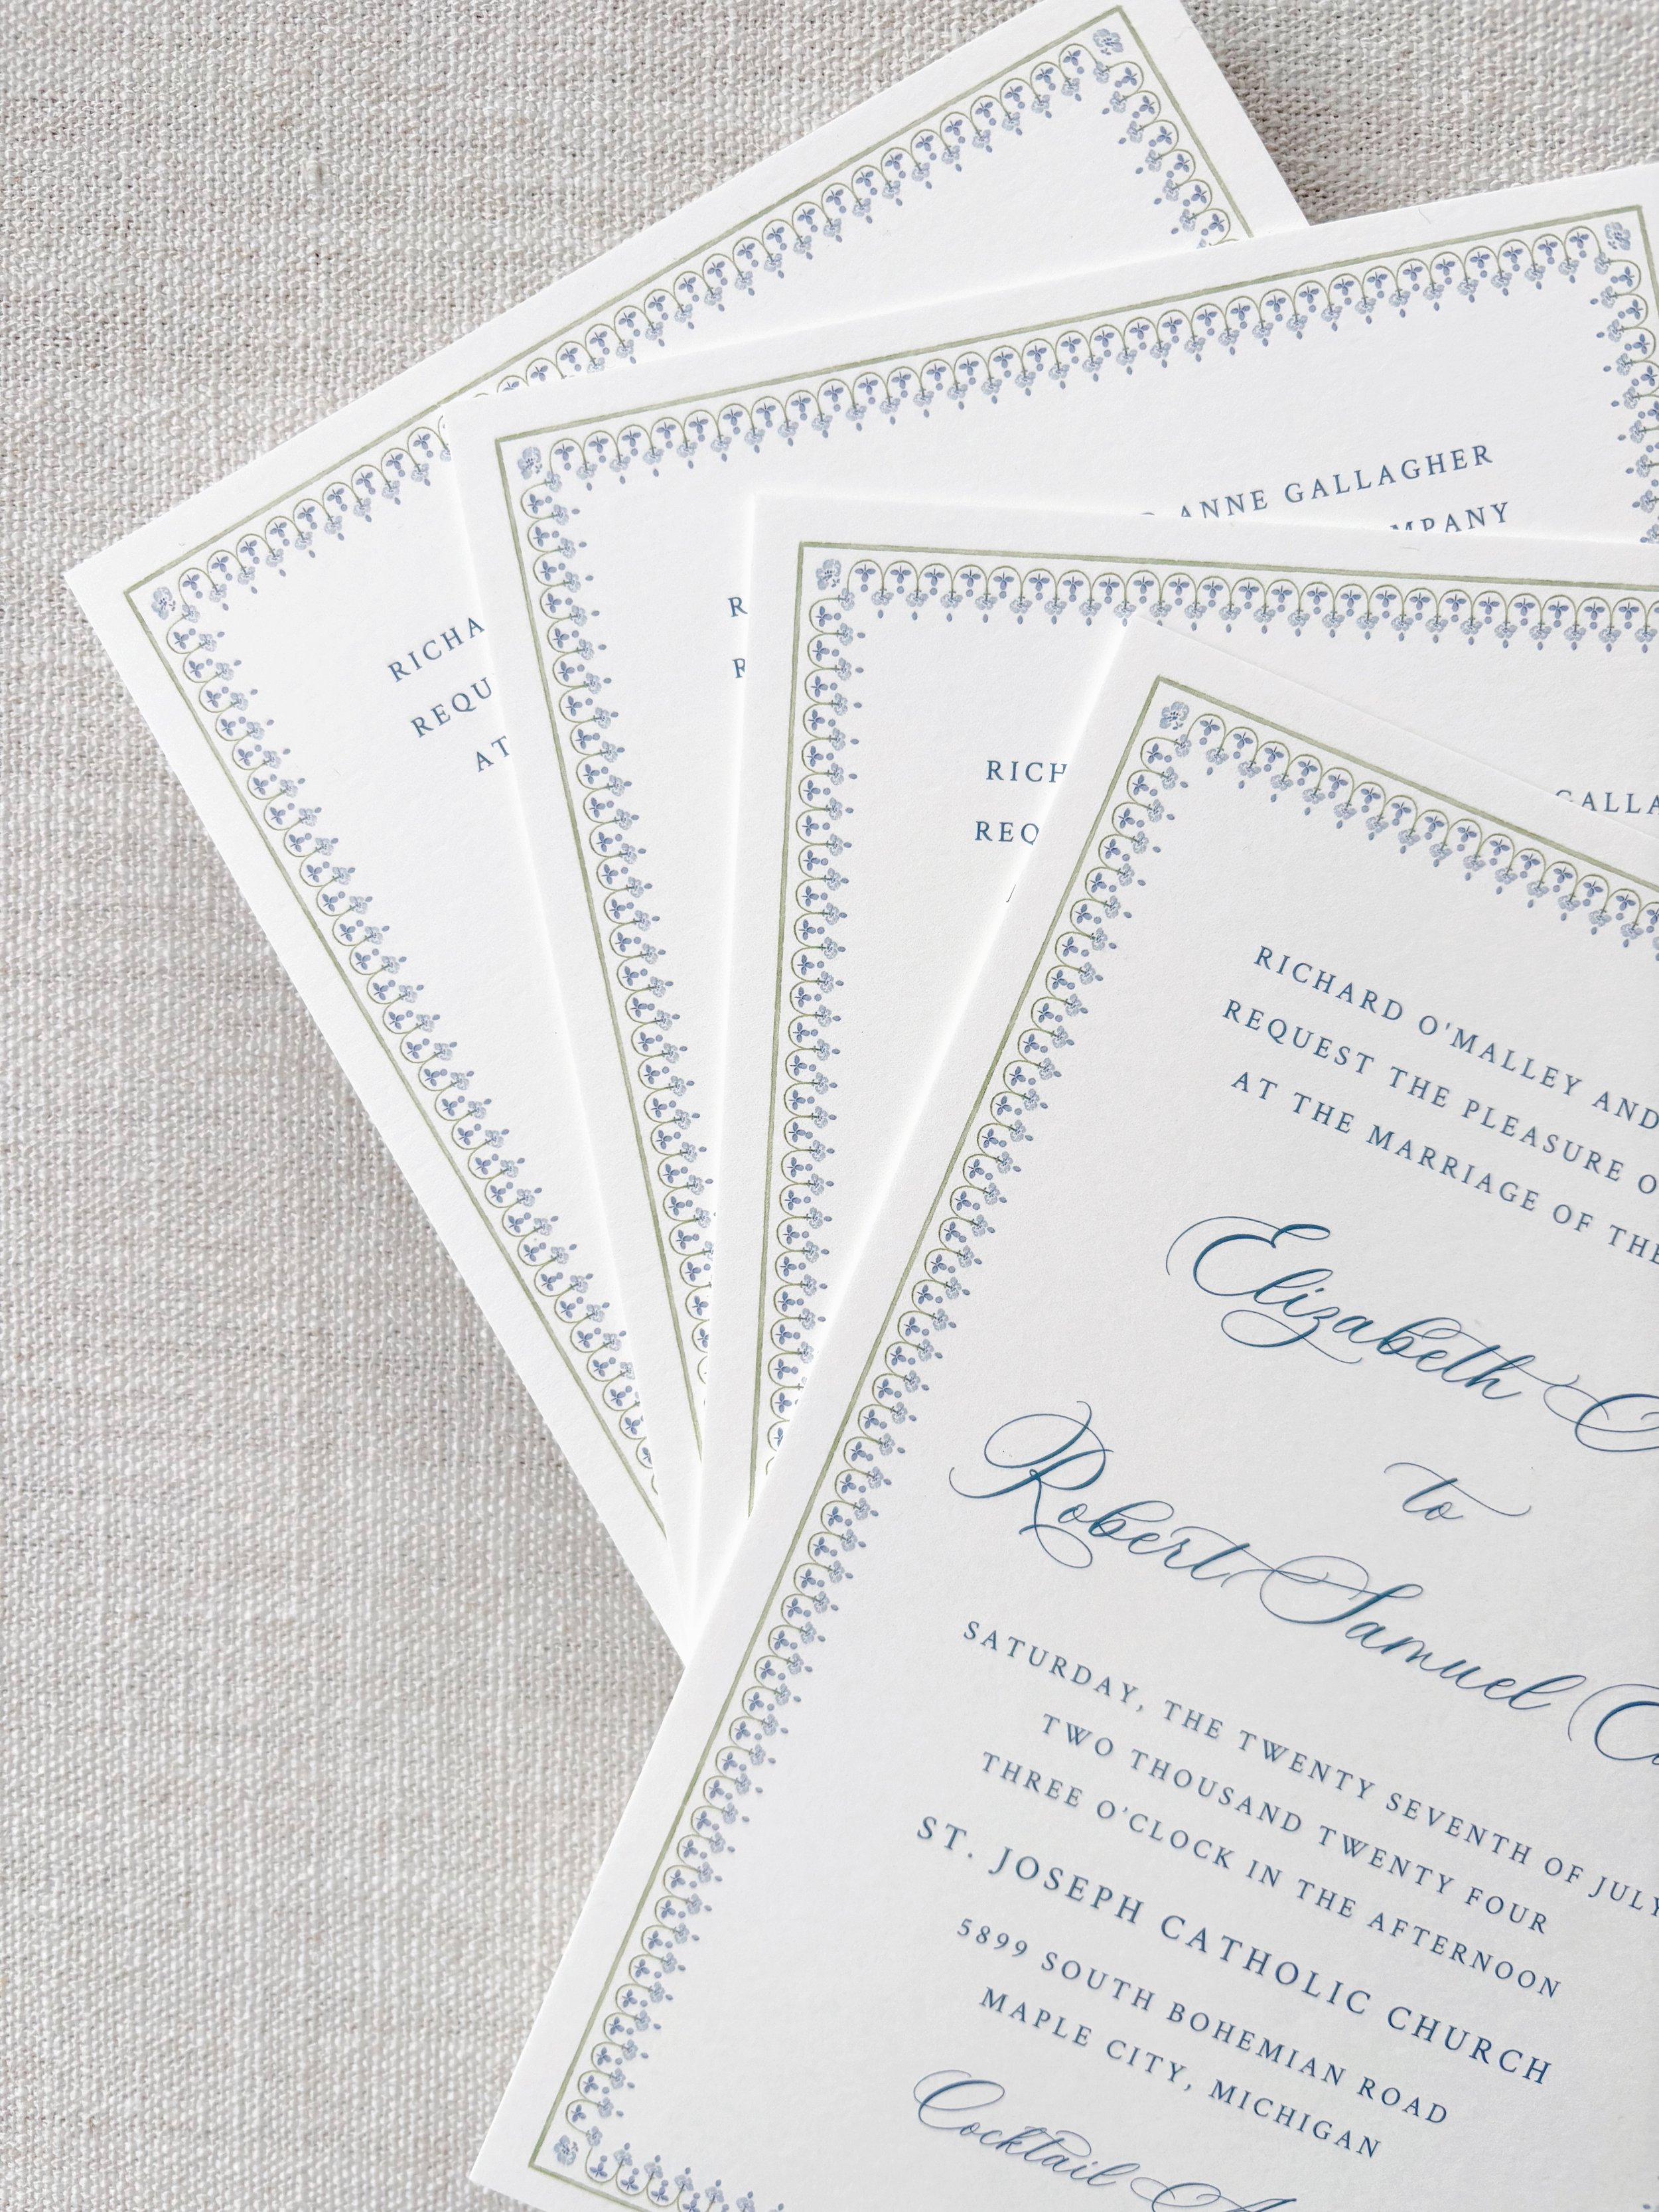 RICHA
REQU
AT
ANNE GALLAGHER
MPANY
R
R
RICH
GALLA
REQ
RICHARD O'MALLEY AND
REQUEST THE PLEASURE O
AT THE MARRIAGE OF THE
Elizabeth
to
Robert Samuel
SATURDAY, THE TWENTY SEVENTH OF JULY
TWO THOUSAND TWENTY FOUR
THREE O'CLOCK IN THE AFTERNOON
ST. JOSEPH CATHOLIC CHURCH
5899 SOUTH BOHEMIAN ROAD
MAPLE CITY, MICHIGAN
Cocktail